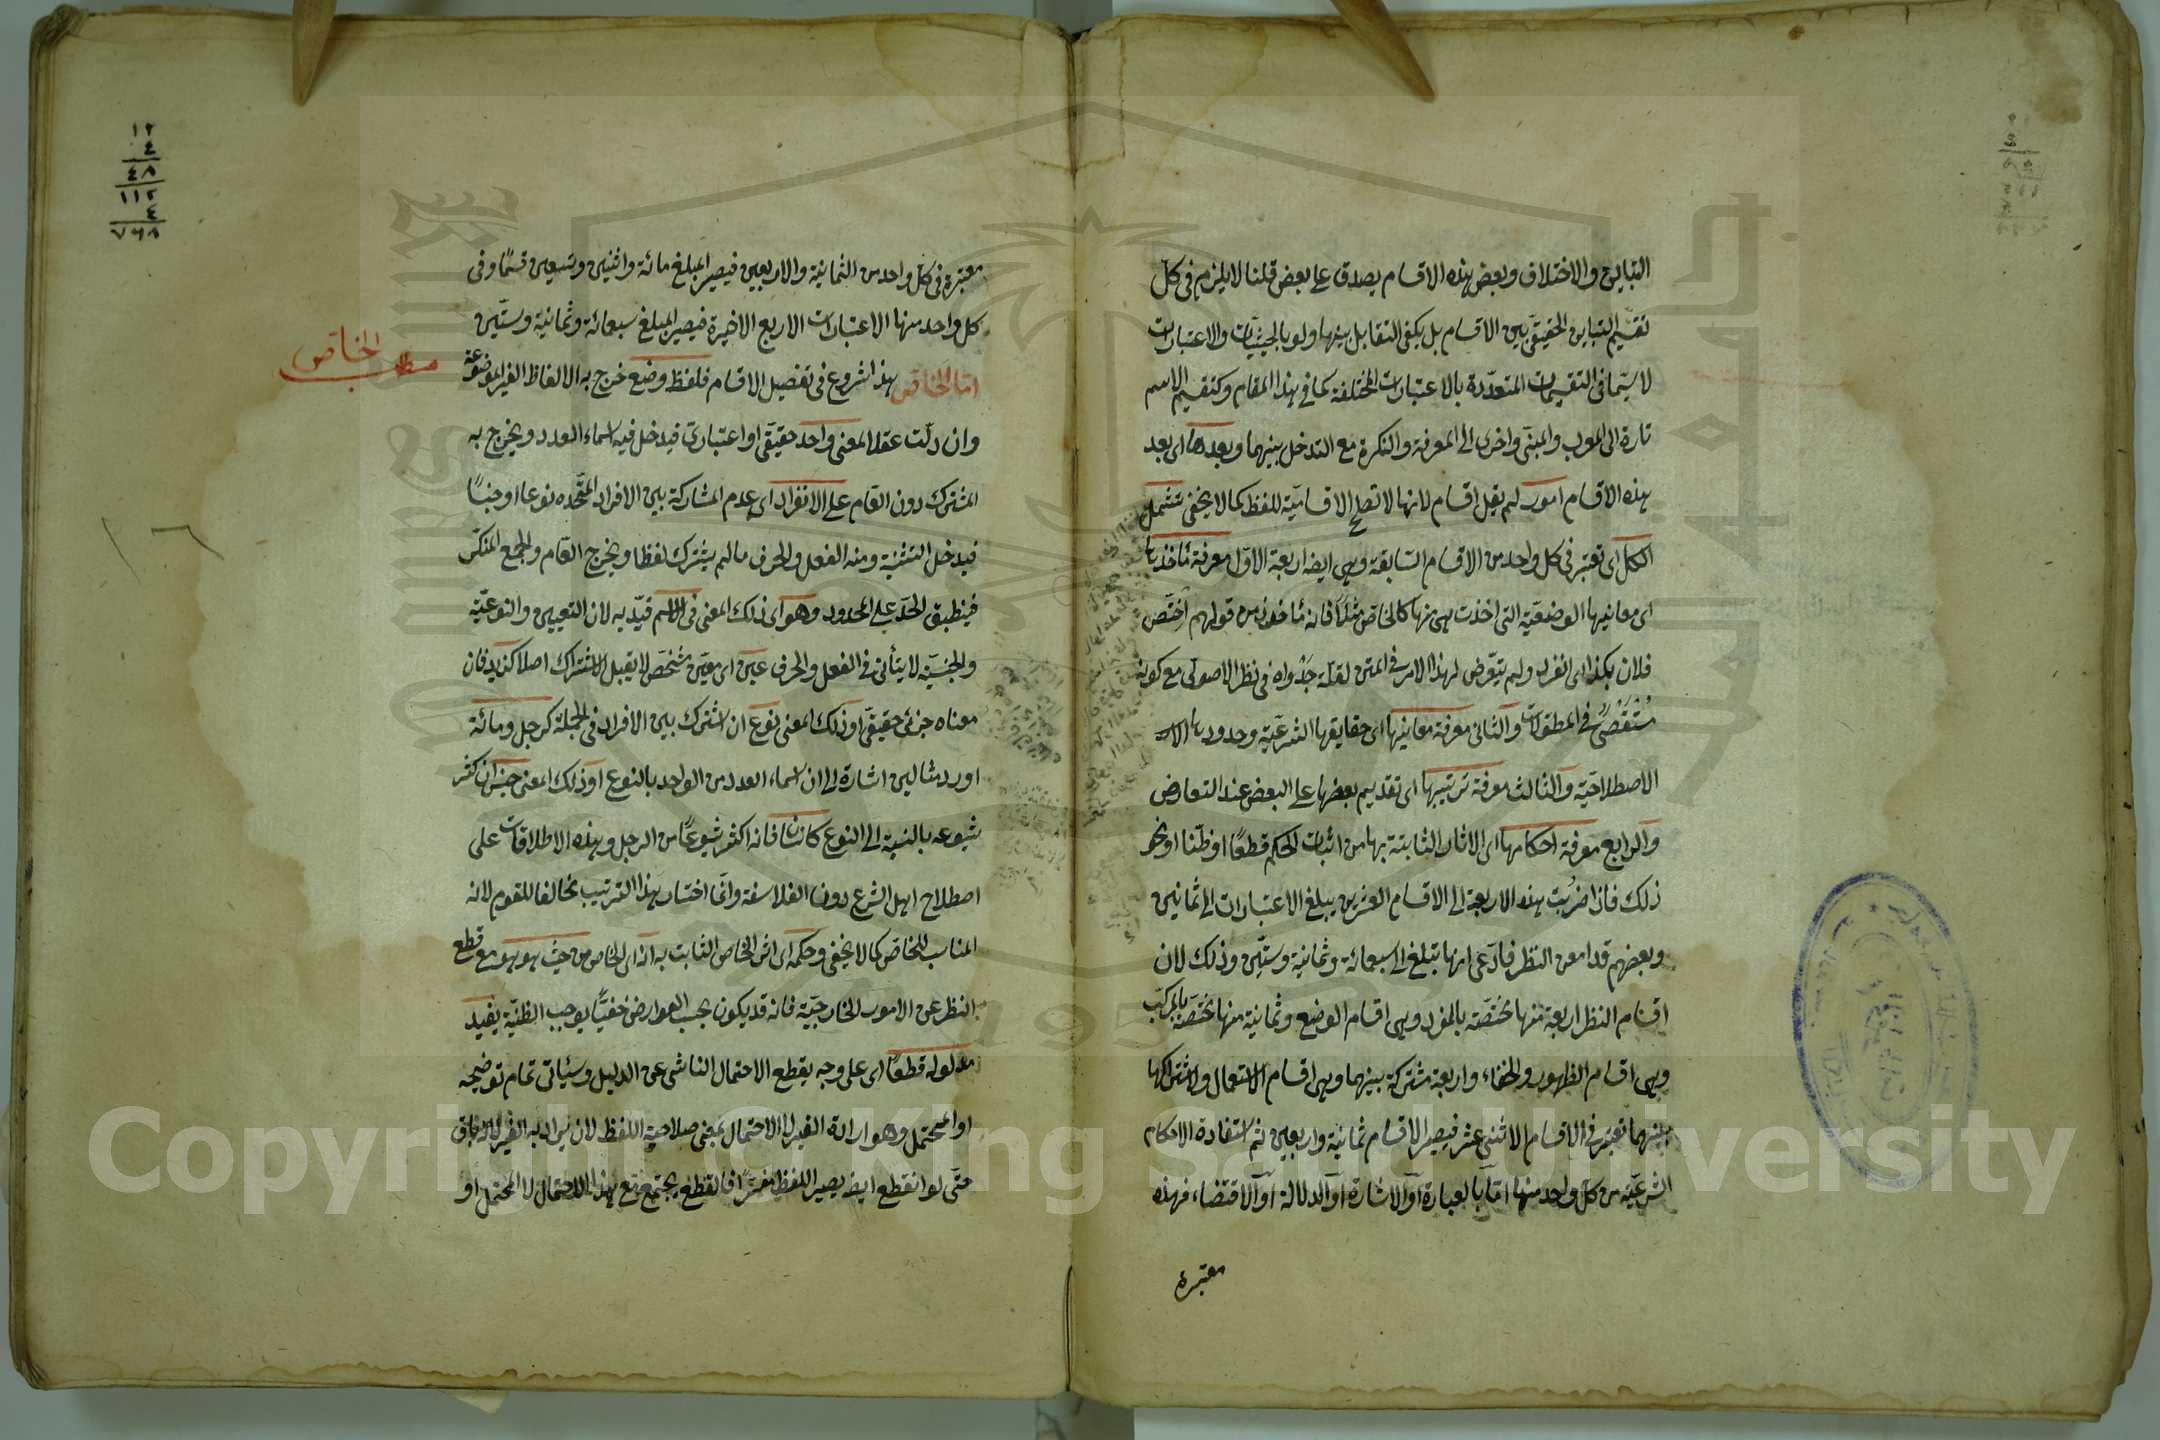 التباين والاختلاف وبعض هذه الاقسام يصدق على بعض قلنا لا يلزم فى كل
تقسيم التباين الحقيقى بين الاقسام بل يكفى التقابل بينها ولو بالحيثيات والاعتبارات
لا سيما فى التقسيمات المتعددة بالاعتبارات المختلفة كما فى هذا المقام وكتقسيم الاسم
تارة الى المعرب والمبنى واخرى الى المعرفة والنكرة مع التداخل بينهما وبعدها اى بعد
هذه الاقسام امور لم يقل اقسام لانها لا تصلح الاقسامية للفظ كما لا يخفى تشمل
الكل اى تعتبر فى كل واحد من الاقسام السابقة وهى ايضا اربعة الاول معرفة مأخذها
اى معانيها الوضعية التى اخذت هى منها كالخاص مثلا فانه مأخوذ من قولهم اختص
فلان بكذا اى انفرد ولم يتعرض لهذا الامر فى المتن لقلة جدواه فى نظر الاصولى مع كونه
مستقصى فى المطولات والثانى معرفة معانيها اى حقايقها الشرعية وحدودها
الاصطلاحية والثالث معرفة ترتيبها اى تقديم بعضها على البعض عند التعارض
والرابع معرفة احكامها اى الاثار الثابتة بها من اثبات الحكم قطعا او ظنا او نحو
ذلك فاذا ضربت هذه الاربعة الى الاقسام العشرين يبلغ الاعتبارات الى ثمانين
وبعضهم قد امعن النظر فادعى انها تبلغ الى سبعمائة وثمانية وستين وذلك لان
اقسام النظر اربعة منها مختصة بالمفرد وهى اقسام الوضع وثمانية منها مختصة بالمركب
وهى اقسام الظهور والخفاء واربعة مشتركة بينهما وهى اقسام الاستعمال والاشتراكها
بينهما تعتبر فى الاقسام الاثنى عشر فيصير الاقسام ثمانية واربعين ثم استفادة الاحكام
الشرعية من كل واحد منها اما بالعبارة او الاشارة او الدلالة او الاقتضاء فهذه
معتبرة
١٢
٤
٤٨
١١٢
٤
٧٦٨
معتبرة فى كل واحد من الثمانية والاربعين فيصير المبلغ مائة واثنين وتسعين قسما وفى
كل واحد منها الاعتبارات الاربع الاخيرة فيصير المبلغ سبعمائة وثمانية وستين
مطلب الخاص
اما الخاص هذا شروع فى تفصيل الاقسام فلفظ وضع خرج به الالفاظ الغير الموضوعة
وان دلت عقلا لمعنى واحد حقيقى او اعتبارى فيدخل فيه اسماء العدد ويخرج به
المشترك دون العام على الانفراد اى عدم المشاركة بين الافراد المتحده نوعا او جنسا
فيدخل التثنية ومنه الفعل والحرف ما لم يشترك لفظا ويخرج العام والجمع المنكر
فينطبق الحد على المحدود وهو اى ذلك المعنى فى الاسم قيد به لان التعيين والنوعية
والجنسية لا يتأتى فى الفعل والحرف عين اى معين مشخص لا يقبل الاشتراك اصلا كزيد فان
معناه جزئى حقيقى او ذلك المعنى نوع ان اشترك بين الافراد فى الجملة كرجل ومائة
اورد مثالين اشارة الى ان اسماء العدد من الواحد بالنوع او ذلك المعنى جنس ان كثر
شيوعه بالنسبة الى النوع كانسان فانه اكثر شيوعا من الرجل وهذه الاطلاقات على
اصطلاح اهل الشرع دون الفلاسفة وانما اختار هذا الترتيب مخالفا للقوم لانه
المناسب للخاص كما لا يخفى وحكمه اى اثر الخاص الثابت به انه اى الخاص من حيث هو هو مع قطع
النظر عن الامور الخارجية فانه قد يكون بحسب العوارض خفيا يوجب الظنية يفيد
مدلوله قطعا اى على وجه يقطع الاحتمال الناشى عن الدليل وسيأتى تمام توضيحه
او المحتمل وهو ارادة الغير لا الاحتمال بمعنى صلاحية اللفظ لان يراد به الغير
حتى لو انقطع ايضا يصير اللفظ مفسرا فالقطع يجتمع مع هذا الاحتمال لا المحتمل او
Copyright © King Saud University